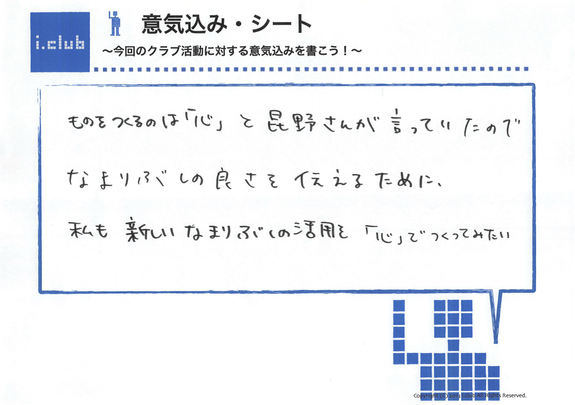 i.club
意気込み・シート
〜今回のクラブ活動に対する意気込みを書こう！〜
ものをつくるのは「心」と昆野さんが言っていたので
なまりぶしの良さを伝えるために、
私も新しいなまりぶしの活用を「心」でつくってみたい